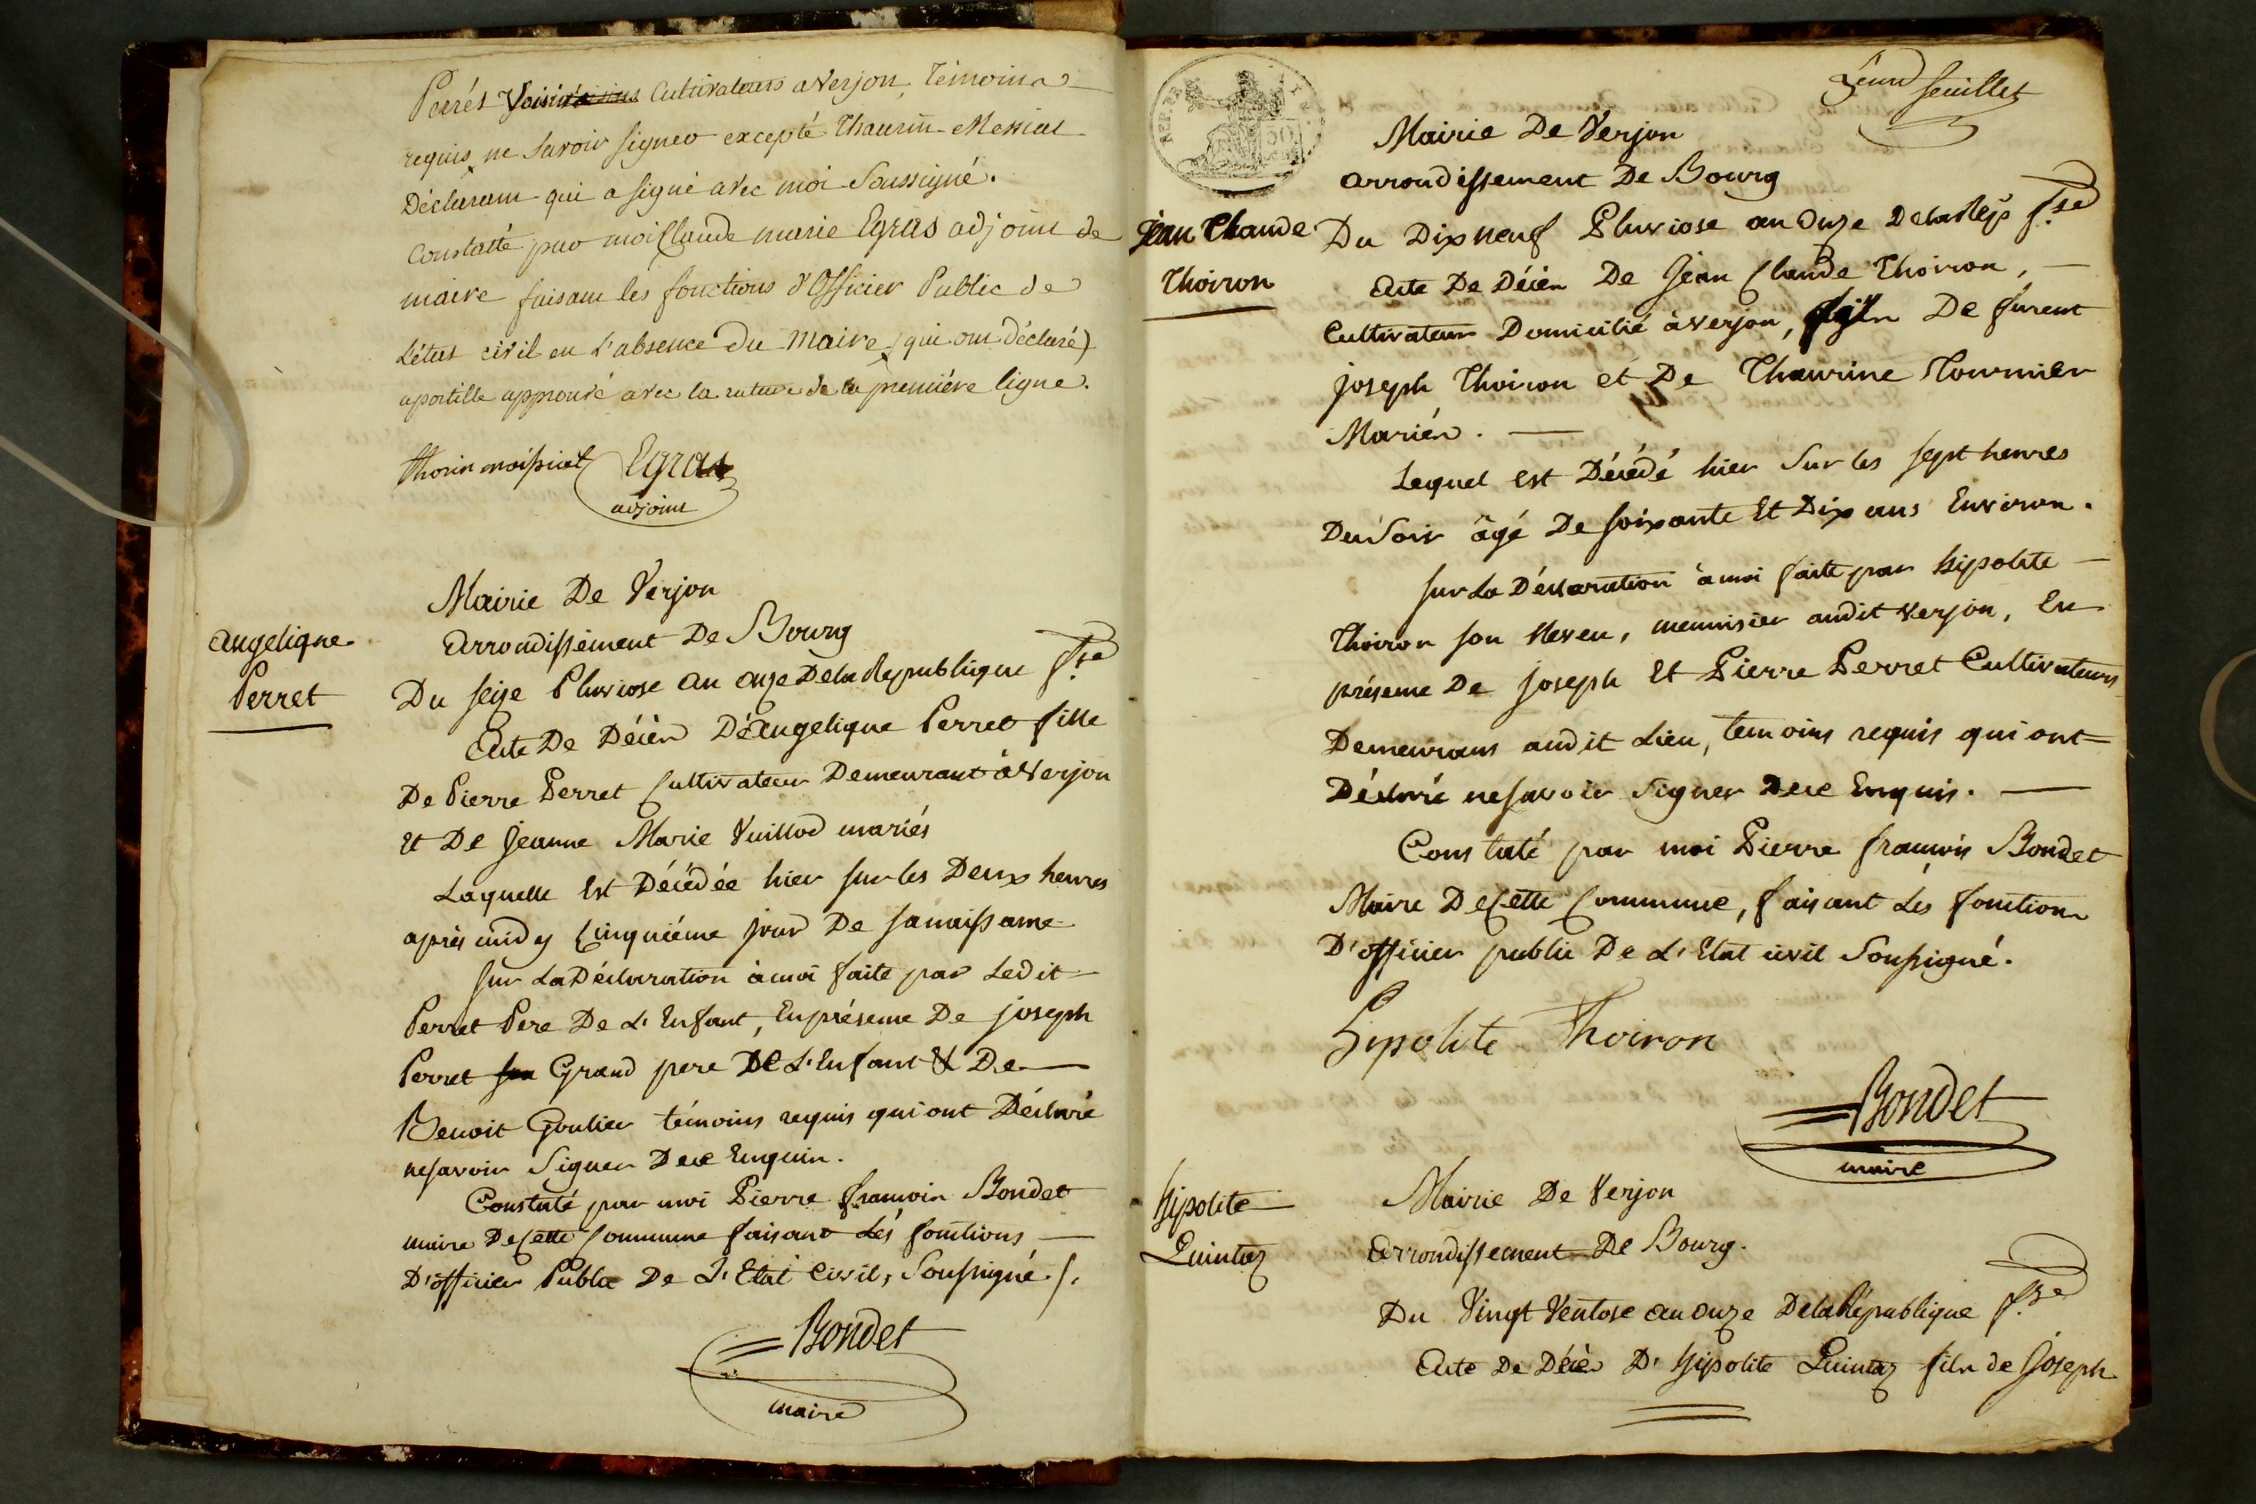 Perrés Voisin Cultivateurs a Verjon, témoins
requis ne savoir signer excepté Thaurin Messiat
Déclarant qui a signé avec moi Soussigné.
Constatté par moi Claude marie Egras adjoint de
maire faisant les fonctions d'Officier Public de
L'état civil en l'absence du Maire (qui ont déclaré)
apostille approuvé avec la rature de la première ligne.
Egras
adjoint
Mairie De Verjon
Arrondissement De Bourg
angelique
Perret
Du seize Pluviose an onze De la Republique fse
Acte De Décès D'Angelique Perret fille
De Pierre Perret Cultivateur Demeurant à Verjon
et De Jeanne Marie Vuillod mariés
Laquelle Est Décédée hier sur les Deux heures
après midy Cinquiéme jour De sa naissance
sur La Déclaration à moi faite par Ledit
Perret Pere De L'Enfant, En présence De joseph
Perret son Grand pere De L'Enfant & De
Benoit Goulier témoins requis qui ont Déclaré
ne savoir Signer De ce Enquis.
Constaté par moi Pierre françois Bondet
maire De Cette Commune faisant Lés fonctions
D'officier Public De L'Etat Civil, Soussigné ./.
Bondet
maire
2eme feuillet
Mairie De Verjon
arrondissement De Bourg
jean Claude
Thoiron
Du Dix neuf Pluviose an Onze De la Rép fse
Acte De Décès De Jean Claude Thoiron,
Cultivateur Domicilié à Verjon, fils De furent
joseph Thoiron et De Thaurine Tournier
Mariés.
Lequel est Décédé hier Sur les sept heures
Du Soir âgé De soixante Et Dix ans Environ.
sur La Déclaration à moi faite par hipolite
Thoiron son Neveu, menuisier audit Verjon, En
présence De joseph Et Pierre Perret Cultivateurs
Demeurans audit Lieu, temoins requis qui ont
Déclaré ne savoir Signer De ce Enquis.
Constaté par moi Pierre françois Bondet
Maire De Cette Commune, faisant Lés fonctions
D'officier public De L'Etat civil Soussigné.
Hipolite Thoiron
Bondet
maire
hipolite
Quintaz
Mairie De Verjon
Arrondissement De Bourg.
Du Vingt Ventose an onze De la République fse
Acte De Décès D'hipolite Quintaz fils de Joseph